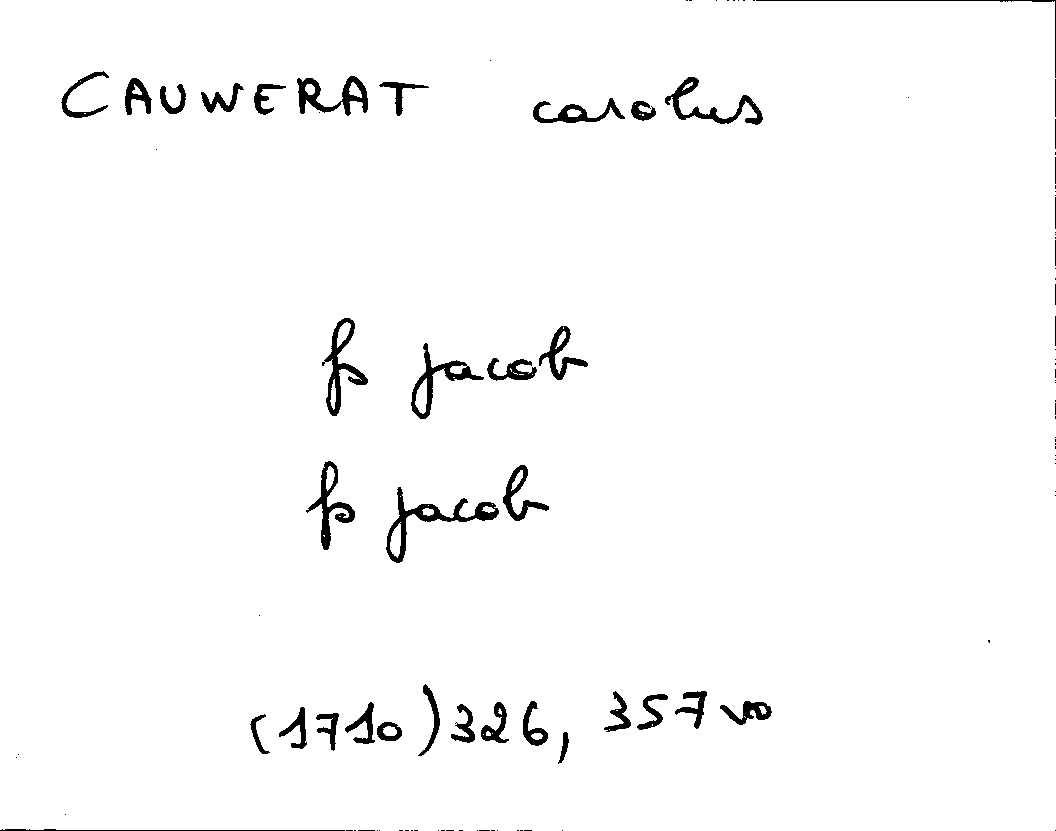 CAUWERAT carolus
fs jacob
fs jacob
(1710) 326, 357 vo